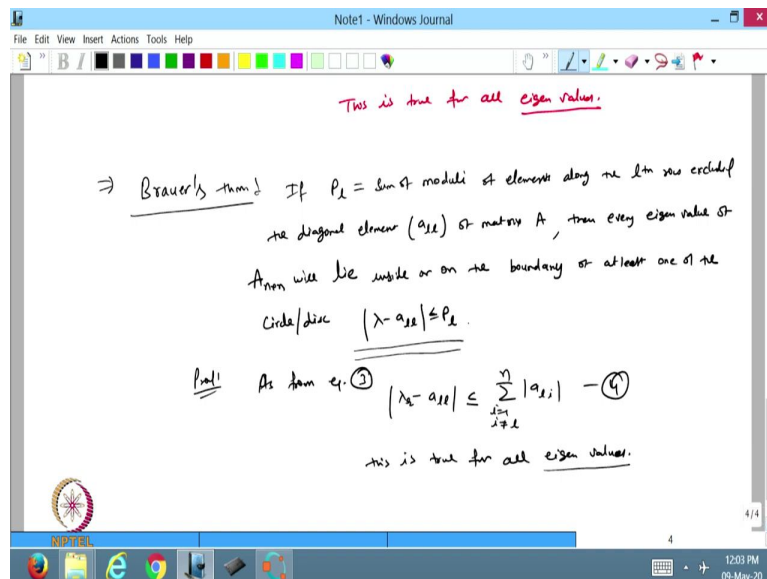 Note1 - Windows Journal
File Edit View Insert Actions Tools Help
This is true for all eigen values.
⇒ Brauer's thm: If P_l = sum of moduli of elements along the lth row excluded
the diagonal element (a_ll) of matrix A, then every eigen value of
A_n×n will lie inside or on the boundary of atleast one of the
Circle/disc |λ - a_ll| ≤ P_l.
Proof: As from eq. ③ |λ_i - a_ll| ≤ \sum_{i=1, i≠l}^{n} |a_li| - ④
this is true for all eigen values.
NPTEL
4/4
4
12:03 PM
09-May-20